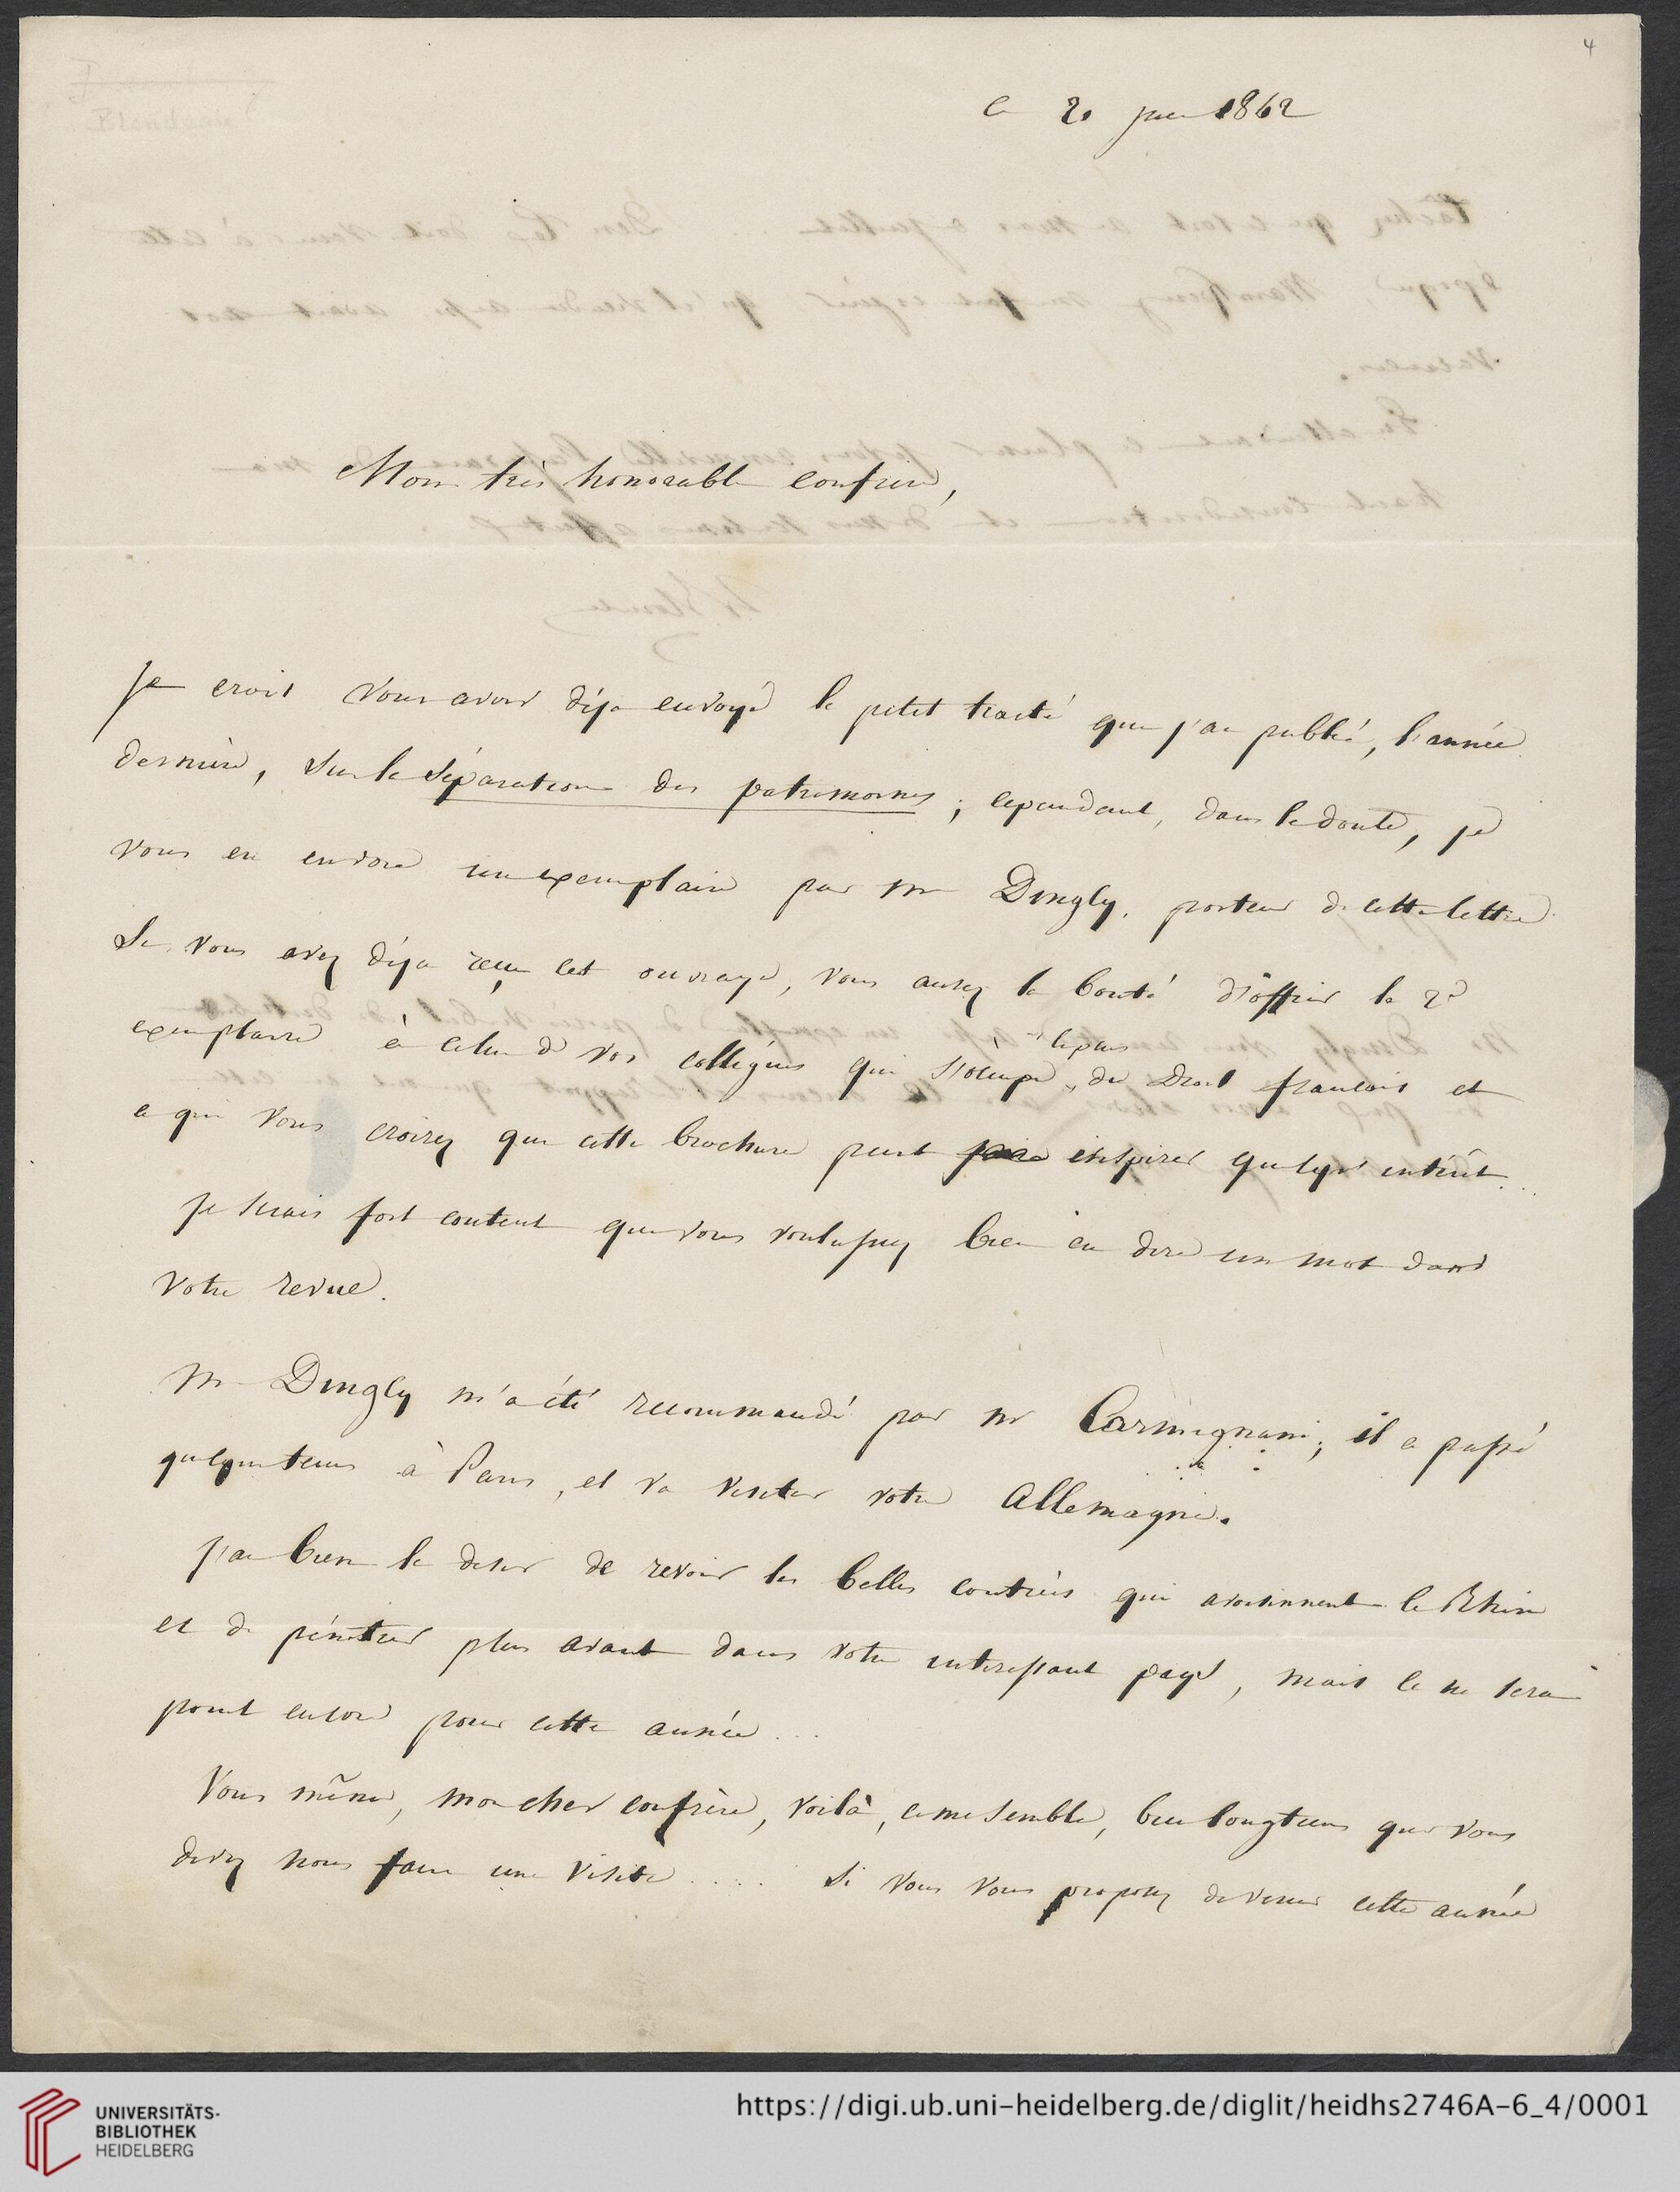 4
Blondeau
le 20 juin 1862
Mon très honorable confrère,
Je crois vous avoir déja envoyé le petit traité que j'ai publié, l'année
dernière, sur la Séparation des patrimoines ; cependant, dans le doute, je
vous en envoie un exemplaire par Mr Dingly, porteur de cette lettre
Si vous avez déja reçu cet ouvrage, vous aurez la bonté d'offrir le 2d
exemplaire à celui de vos collégues qui s'ocupe le plus du Droit francais et
a qui vous croirez que cette brochure peut inspirer quelqu' intérêt...
Je serais fort content que vous voulussiez bien en dire un mot dans
votre revue.
Mr Dingly m'a été recommandé par Mr Carmignani ; il a passé
quelque tems à Paris, et va visiter votre Allemagne.
J'ai bien le desir de revoir les belles contrées qui avoisinnent le Rhin
et de pénétrer plus avant dans votre interessant pays, mais ce ne sera
point encore pour cette année ...
Vous même, mon cher confrère, voilà, ce me semble, bien longtems que vous
devez nous faire une visite .... Si vous vous proposez de venir cette année
UNIVERSITÄTS-
BIBLIOTHEK
HEIDELBERG
https://digi.ub.uni-heidelberg.de/diglit/heidhs2746A-6_4/0001